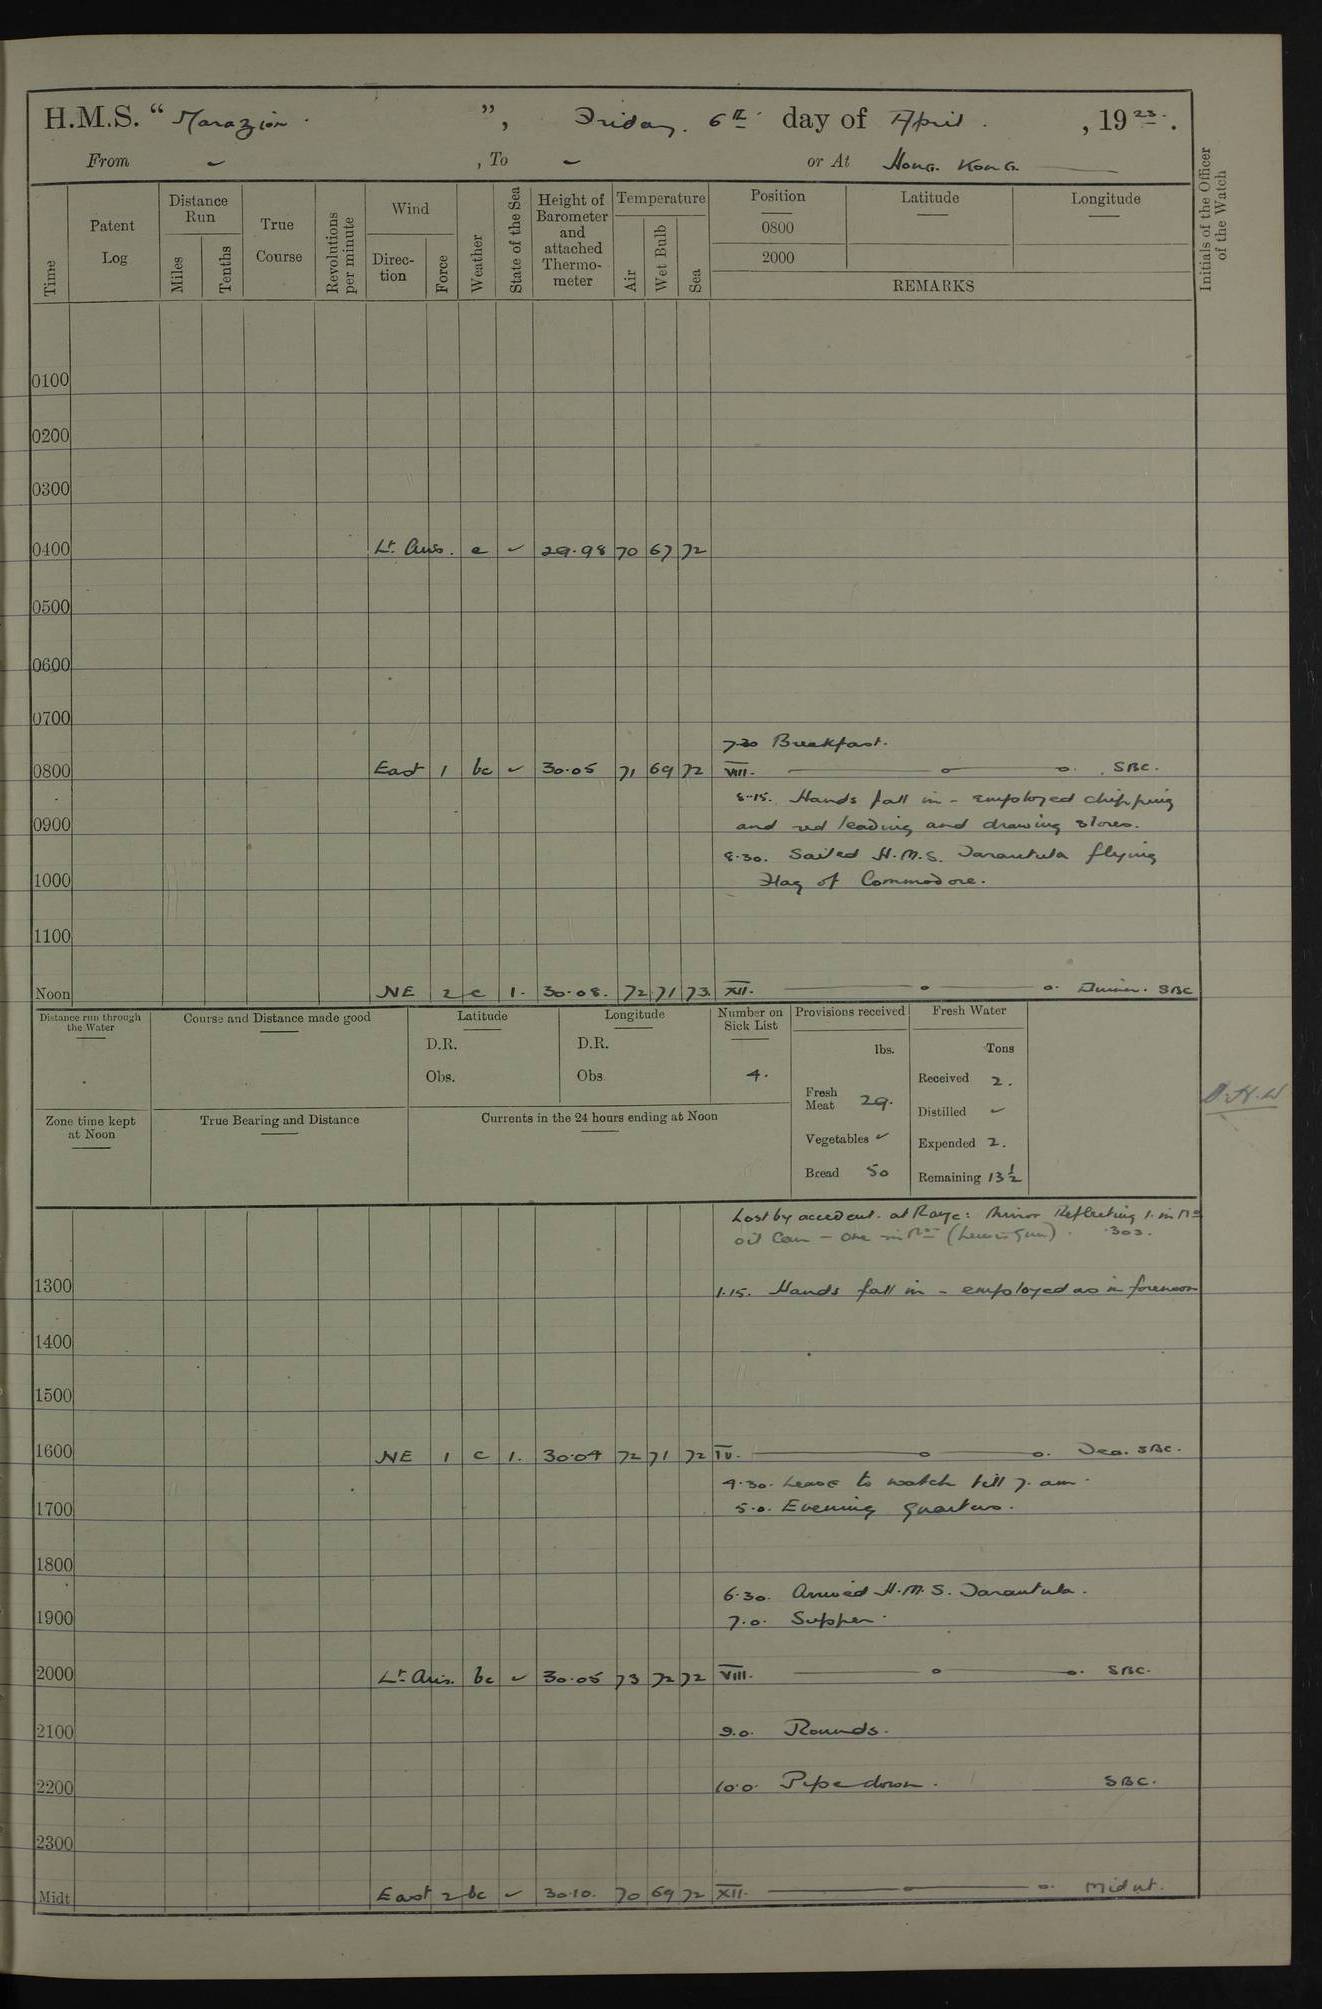 H.M.S. “ Marazion ”, Friday. 6th day of April. , 1923.
From ✓ , To ✓ or At Hong Kong
Time Patent Log Distance Run Miles Tenths True Course Revolutions per minute Wind Direc-tion Force Weather State of the Sea Height of Barometer and attached Thermo-meter Temperature Air Wet Bulb Sea Position 0800 2000 Latitude Longitude REMARKS Initials of the Officer of the Watch
0100
0200
0300
0400 Lt. Airs. c ✓ 29.98 70 67 72
0500
0600
0700
7.30 Breakfast.
0800 East 1 bc ✓ 30.05 71 69 72 VIII. SBC.
8.15. Hands fall in - employed chipping
0900 and red leading and drawing stores.
8.30. Sailed H.M.S. Tarantula flying
1000 Flag of Commodore.
1100
Noon NE 2 c 1. 30.08. 72 71 73. XII. Dinner. SBC
Distance run through the Water Course and Distance made good Latitude Longitude Number on Sick List Provisions received Fresh Water
D.R. D.R. lbs. Tons
Obs. Obs 4. Received 2.
Fresh Meat 29.
Distilled ✓
Zone time kept at Noon True Bearing and Distance Currents in the 24 hours ending at Noon
Vegetables ✓ Expended 2.
Bread 50 Remaining 13½
Lost by accident. at Range: Mirror Reflecting 1. in No
oil Can - one in No (Lewis Gun). .303.
1300 1.15. Hands fall in - employed as in forenoon
1400
1500
1600 NE 1 c 1. 30.04 72 71 72 IV. Tea. SBC.
4.30. Leave to watch till 7. am.
1700 5.0. Evening Quarters.
1800
6.30. Arrived H.M.S. Tarantula.
1900 7.0. Supper.
2000 Lt. Airs. bc ✓ 30.05 73 72 72 VIII. SBC.
2100 9.0. Rounds.
2200 10.0. Pipe down. SBC.
2300
Midt East 2 bc ✓ 30.10. 70 69 72 XII. Midnt.